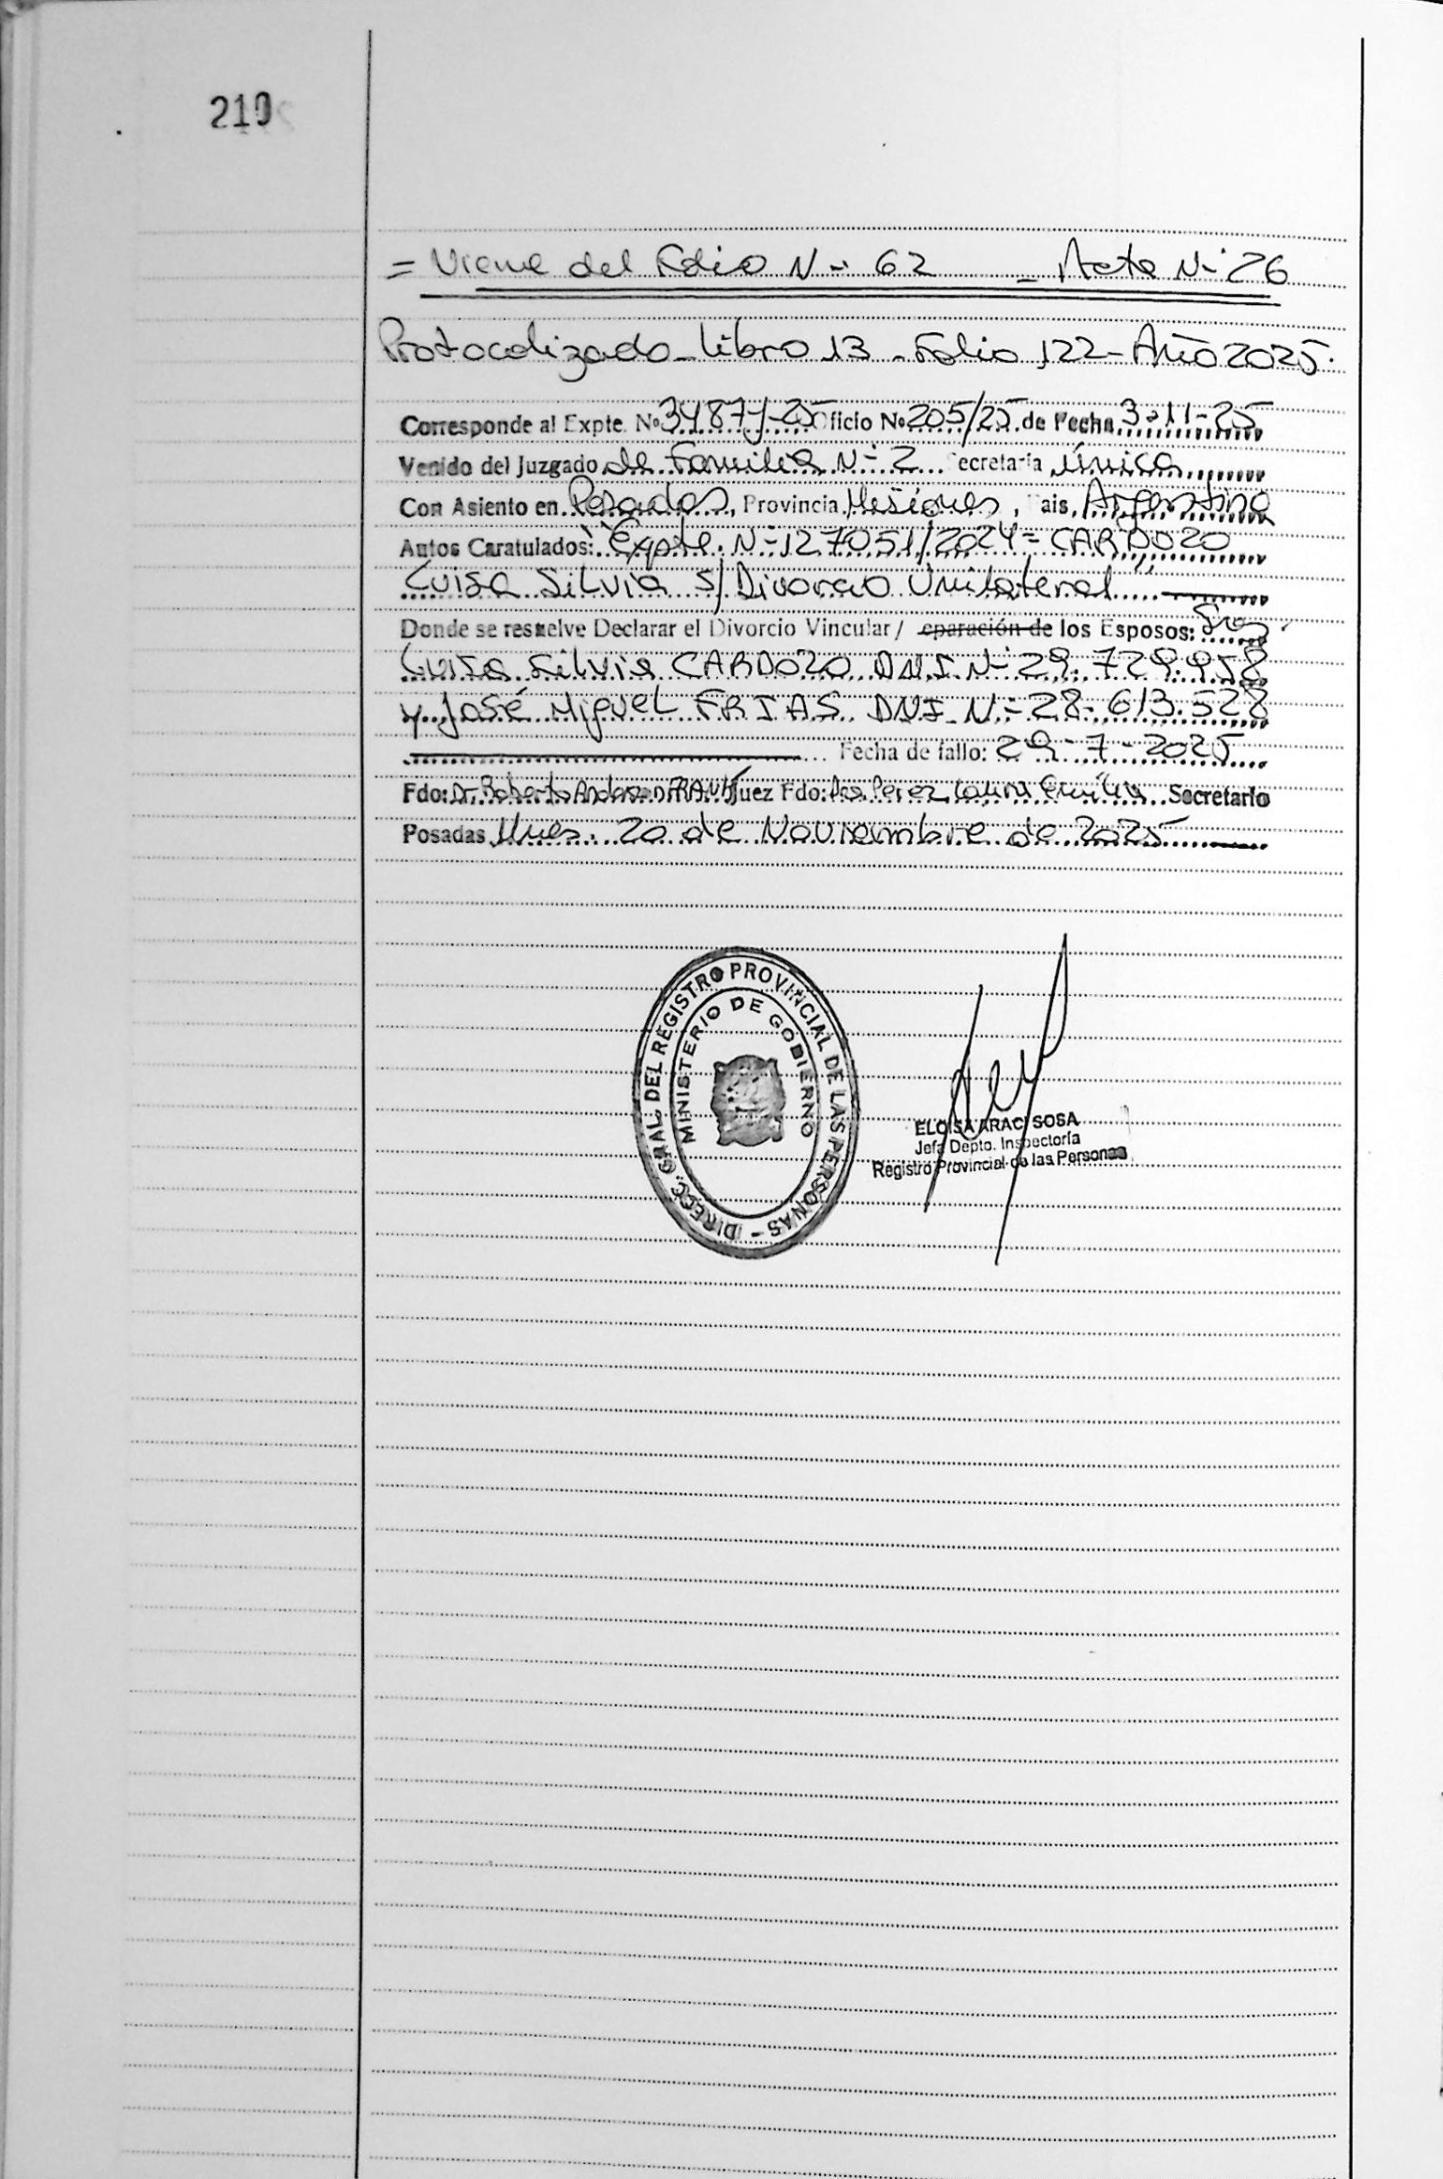 210
= Viene del Folio N- 62 - Acta N- 26
Protocolizado - Libro 13 - Folio 122 - Año 2025.
Corresponde al Expte. Nº 3487-J-25 Oficio Nº 205/25 de Fecha 3-11-25
Venido del Juzgado de Familia N- 2 ecretaria Única
Con Asiento en Posadas, Provincia Misiones, ais, Argentina
Autos Caratulados: "Expte. N- 127051/2024 = CARDOZO
Luisa Silvia S/ Divorcio Unilateral"
Donde se resuelve Declarar el Divorcio Vincular/ eparación de los Esposos:
Luisa Silvia CARDOZO DNI N- 29.729.958
y José Miguel FRIAS DNI N- 28.613.528
Fecha de fallo: 29-7-2025
Fdo: Dr. Roberto Anderson Juez Fdo: Dra. Perez Laura Emilia Secretario
Posadas Mnes. 20 de Noviembre de 2025
DIRECC. GRAL. DEL REGISTRO PROVINCIAL DE LAS PERSONAS -
MINISTERIO DE GOBIERNO
ELOISA ARACI SOSA
Jefa Depto. Inspectoría
Registro Provincial de las Personas